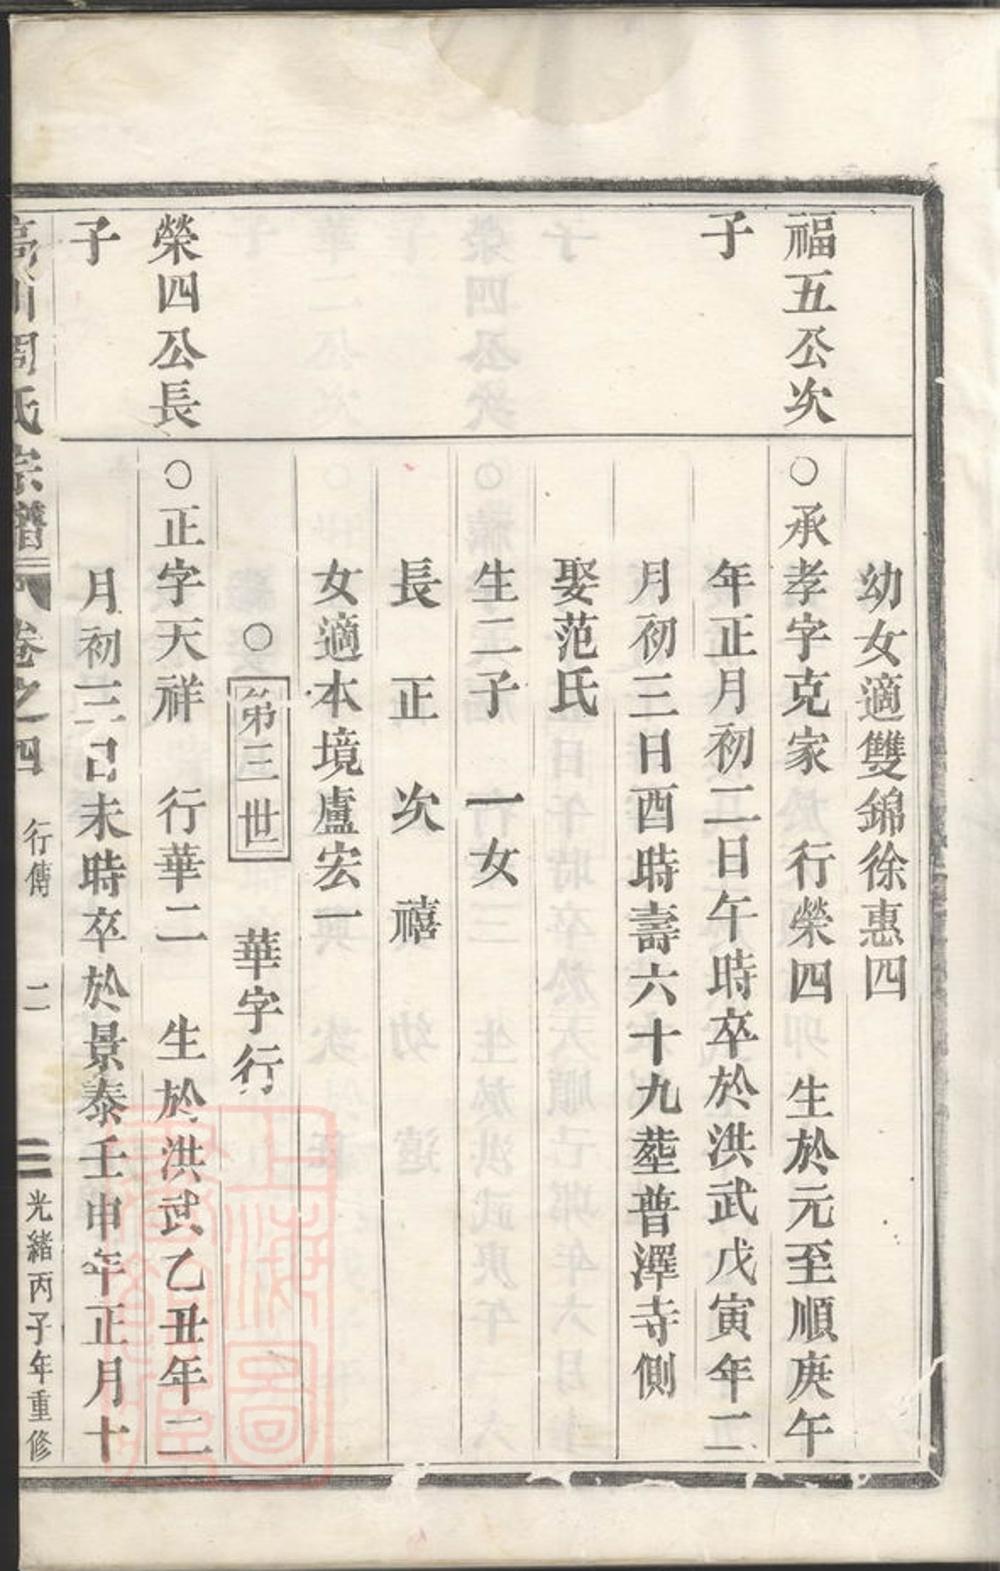 幼女適雙錦徐惠四
福五公次
子
○承孝字克家 行榮四 生於元至順庚午
年正月初二日午時卒於洪武戊寅年二
月初三日酉時壽六十九塟普澤寺側
娶范氏
生二子 一女
長 正 次 禧
女適本境盧宏一
○ 第三世 華字行
榮四公長
子
○正字天祥 行華二 生於洪武乙丑年二
月初三日未時卒於景泰壬申年正月十
周氏宗譜 卷之四 行傳 二 光緒丙子年重修